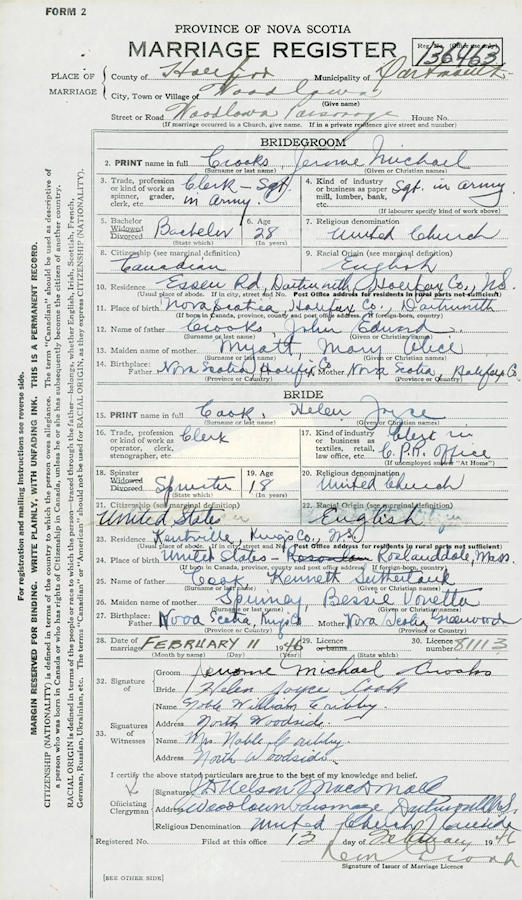 FORM 2
PROVINCE OF NOVA SCOTIA
MARRIAGE REGISTER
Reg. No. (Office use only)
136463
PLACE OF MARRIAGE
County of Halifax Municipality of Dartmouth
City, Town or Village of Woodlawn
(Give name)
Street or Road Woodlawn Parsonage House No.
(If marriage occurred in a Church, give name. If in a private residence give street and number)
BRIDEGROOM
2. PRINT name in full Crooks, Jerome Michael
(Surname or last name) (Given or Christian names)
3. Trade, profession or kind of work as spinner, grader, clerk, etc. Clerk - Sgt. in Army.
4. Kind of industry or business as paper mill, lumber, bank, etc. Sgt. in army.
(If labourer specify kind of work above)
5. Bachelor Widowed Divorced Bachelor
(State which)
6. Age 28
(In years)
7. Religious denomination United Church
8. Citizenship (see marginal definition) Canadian
9. Racial Origin (see marginal definition) English
10. Residence Essen Rd, Dartmouth, Halifax Co., N.S.
(Usual place of abode. If in city, street and No. Post Office address for residents in rural parts not sufficient)
11. Place of birth Nova Scotia, Halifax Co., Dartmouth
(If born in Canada, province, county and post office address. If foreign-born, country)
12. Name of father Crooks John Edward
(Surname or last name) (Given or Christian names)
13. Maiden name of mother Myatt, Mary Alice
(Surname or last name) (Given or Christian names)
14. Birthplace: Father Nova Scotia Halifax Co. Mother Nova Scotia, Halifax Co.
(Province or Country) (Province or Country)
BRIDE
15. PRINT name in full Cook, Helen Joyce
(Surname or last name) (Given or Christian names)
16. Trade, profession or kind of work as operator, clerk, stenographer, etc. Clerk
17. Kind of industry or business as textiles, retail, law office, etc. Clerk in C.P.R. Office
(If unemployed answer "At Home")
18. Spinster Widowed Divorced Spinster
(State which)
19. Age 18
(In years)
20. Religious denomination United Church
21. Citizenship (see marginal definition) United States
22. Racial Origin (see marginal definition) English
23. Residence Kentville, Kings Co., N.S.
(Usual place of abode. If in city, street and No. Post Office address for residents in rural parts not sufficient)
24. Place of birth United States - Roslandale, Mass.
(If born in Canada, province, county and post office address. If foreign-born, country)
25. Name of father Cook, Kenneth
(Surname or last name) (Given or Christian names)
26. Maiden name of mother Spinney, Bessie Vonetta
(Surname or last name) (Given or Christian names)
27. Birthplace: Father Nova Scotia, Kings Co. Mother Nova Scotia Greenwood
(Province or Country) (Province or Country)
28. Date of marriage FEBRUARY 11 1946
(Month by name) (Day) (Year)
29. Licence or banns
30. Licence number 81113
32. Signature of
Groom Jerome Michael Crooks
Bride Helen Joyce Cook
33. Signatures of Witnesses
Name Noble William Cribby
Address North Woodside.
Name Mrs Noble Cribby
Address North Woodside.
I certify the above stated particulars are true to the best of my knowledge and belief.
Officiating Clergyman
Signature Nelson MacDonald
Address Woodlawn Parsonage Dartmouth N.S.
Religious Denomination United Church
Registered No. Filed at this office 13 day of February 1946
Signature of Issuer of Marriage Licence
[SEE OTHER SIDE]
For registration and mailing instructions see reverse side.
MARGIN RESERVED FOR BINDING. WRITE PLAINLY, WITH UNFADING INK. THIS IS A PERMANENT RECORD.
CITIZENSHIP (NATIONALITY) is defined in terms of the country to which the person owes allegiance. The term "Canadian" should be used as descriptive of
a person who was born in Canada or who has rights of Citizenship in Canada, unless he or she has subsequently become the citizen of another country.
RACIAL ORIGIN is defined in terms of the people or race to which the person—traced through the father—belongs, whether English, Irish, Scottish, French,
German, Russian, Ukrainian, etc. The terms "Canadian" or "American" should not be used for RACIAL ORIGIN, as they express CITIZENSHIP (NATIONALITY).